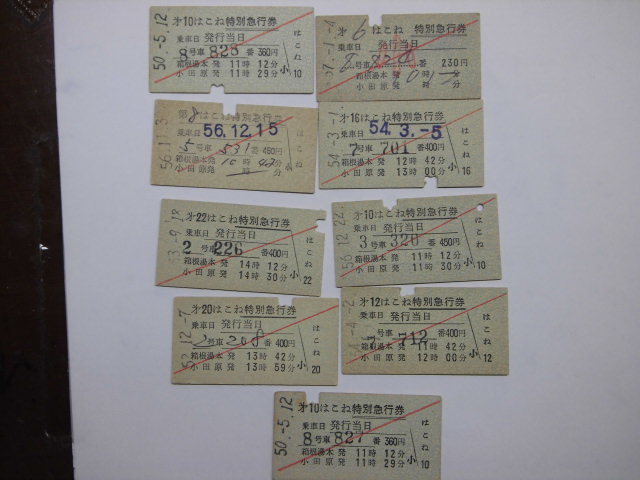 50.-5.12
才10はこね特別急行券
乗車日 発行当日
8号車 825 番 360円
箱根湯本 発 11時 12分
小田原 発 11時 29分
はこね
小 10
才6はこね 特別急行券
乗車日 発行当日
号車 番 230円
箱根湯本 発 時 分
小田原 発 時 分
はこね
第8はこね特別急行券
乗車日 56.12.15
5号車 531 番 450円
箱根湯本 発 10時 42分
小田原 発 時 分
はこね
小
54.-3.-1
才16はこね特別急行券
乗車日 54.3.-5
7号車 701 番 400円
箱根湯本 発 12時 42分
小田原 発 13時 00分
はこね
小 16
53.-9.18
才22はこね特別急行券
乗車日 発行当日
2号車 226 番 400円
箱根湯本 発 14時 12分
小田原 発 14時 30分
はこね
小 22
56.12.22
才10はこね特別急行券
乗車日 発行当日
3号車 320 番 450円
箱根湯本 発 11時 12分
小田原 発 11時 30分
はこね
小 10
52.12.-7
才20はこね特別急行券
乗車日 発行当日
2号車 208 番 400円
箱根湯本 発 13時 42分
小田原 発 13時 59分
はこね
小 20
才12はこね特別急行券
乗車日 発行当日
号車 712 番 400円
箱根湯本 発 11時 42分
小田原 発 12時 00分
はこね
小 12
50.-5.12
才10はこね特別急行券
乗車日 発行当日
8号車 827 番 360円
箱根湯本 発 11時 12分
小田原 発 11時 29分
はこね
小 10